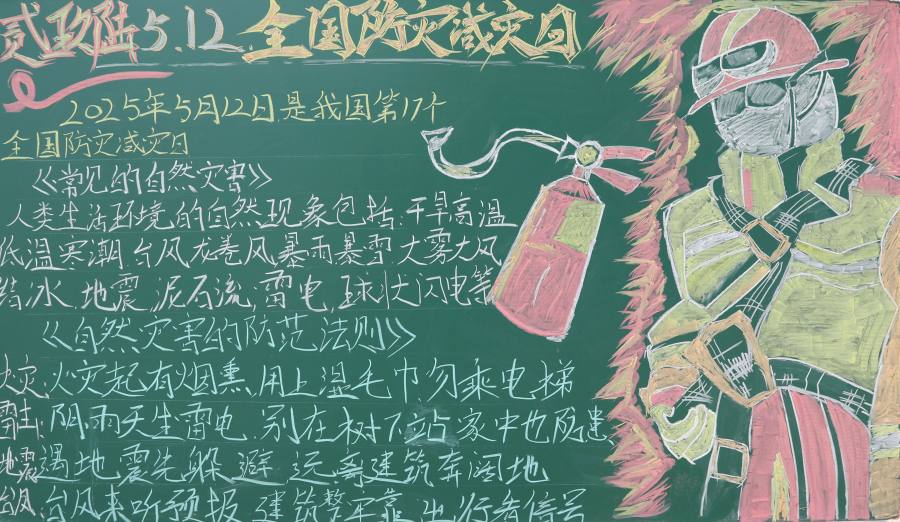 贰玖陆5.12全国防灾减灾日
2025年5月12日是我国第17个
全国防灾减灾日
《常见的自然灾害》
人类生活环境的自然现象包括:干旱高温
低温寒潮 台风龙卷风暴雨暴雪 大雾大风
结冰 地震 泥石流 雷电 球状闪电等
《自然灾害的防范法则》
火灾:火灾起有烟熏 用上湿毛巾勿乘电梯
雷击:阴雨天生雷电 别在树下站 家中也防患
地震:遇地震先躲避 远离建筑奔阔地
台风:台风来听预报 建筑整牢靠 出行看信号